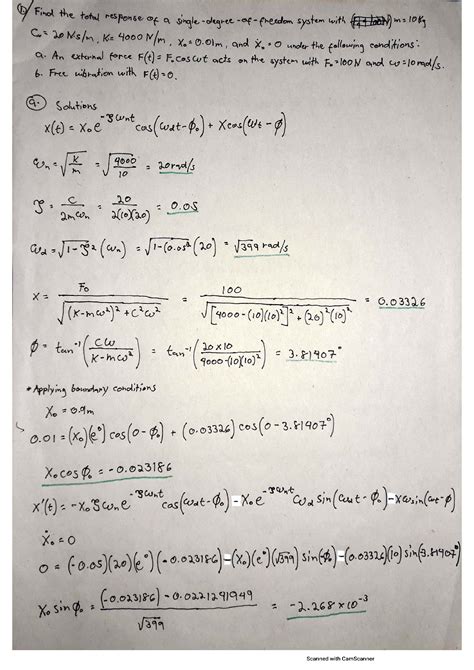 Find the total response of a single-degree-of-freedom system with m = 10 kg
C = 20 N·s/m, K = 4000 N/m, X₀ = 0.01m, and Ẋ₀ = 0 under the following conditions:
a. An external force F(t) = F₀ cos ωt acts on the system with F₀ = 100N and ω = 10 rad/s.
b. Free vibration with F(t) = 0.
a. Solutions
X(t) = X₀e^-ζωnt cos(ωdt - ϕ₀) + X cos(ωt - ϕ)
ωn = √(K/m) = √(4000/10) = 20 rad/s
ζ = C/(2mωn) = 20/(2(10)(20)) = 0.05
ωd = √(1-ζ²) (ωn) = √(1-(0.05)²) (20) = √399 rad/s
X = F₀/√((K-mω²)² + C²ω²) = 100/√([4000 - (10)(10)²]² + (20)²(10)²) = 0.03326
ϕ = tan⁻¹(Cω/(K-mω²)) = tan⁻¹(20×10/(4000-(10)(10)²)) = 3.81407°
* Applying boundary conditions
X₀ = 0.01m
0.01 = (X₀)(e⁰) cos(0-ϕ₀) + (0.03326) cos(0 - 3.81407°)
X₀ cos ϕ₀ = -0.023186
X'(t) = -X₀ζωn e^-ζωnt cos(ωdt-ϕ₀) - X₀e^-ζωnt ωd sin(ωdt-ϕ₀) - Xω sin(ωt-ϕ)
Ẋ₀ = 0
0 = (-0.05)(20)(e⁰)(-0.023186) - (X₀)(e⁰)(√399) sin(ϕ₀) - (0.03326)(10) sin(3.81407°)
X₀ sin ϕ₀ = ((-0.023186) - 0.0221241949)/√399 = -2.268 × 10⁻³
Scanned with CamScanner